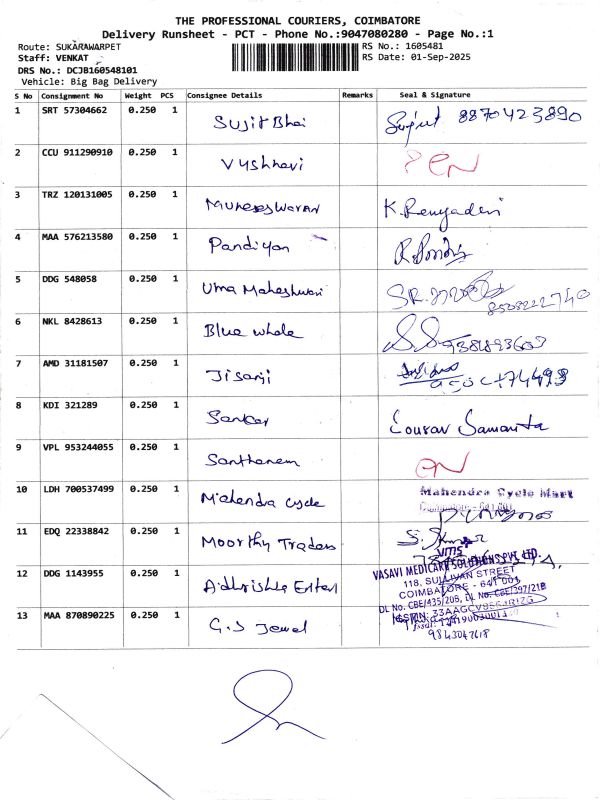 THE PROFESSIONAL COURIERS, COIMBATORE
Delivery Runsheet - PCT - Phone No.:9047080280 - Page No.:1
Route: SUKARAWARPET RS No.: 1605481
Staff: VENKAT RS Date: 01-Sep-2025
DRS No.: DCJB160548101
Vehicle: Big Bag Delivery
S No Consignment No Weight PCS Consignee Details Remarks Seal & Signature
1 SRT 57304662 0.250 1 Sujit Bhai 8870423890
2 CCU 911290910 0.250 1 Vyshnavi
3 TRZ 120131005 0.250 1 Muneeswaran K. Renyadevi
4 MAA 576213580 0.250 1 Pandiyan
5 DDG 548058 0.250 1 Uma Maheshwari
6 NKL 8428613 0.250 1 Blue whale
7 AMD 31181507 0.250 1 Jisanji
8 KDI 321289 0.250 1 Sankar Sourav Samanta
9 VPL 953244055 0.250 1 Santhanam
10 LDH 700537499 0.250 1 Mahendra Cycle Mahendra Cycle Mart
11 EDQ 22338842 0.250 1 Moorthy Traders
vms
VASAVI MEDICARE SOLUTIONS PVT. LTD.
12 DDG 1143955 0.250 1 118, SULLIVAN STREET
COIMBATORE - 641 001
DL No. CBE/435/20B, DL No. CBE/397/21B
13 MAA 870890225 1 0.250 G.S Jewel
9843047618